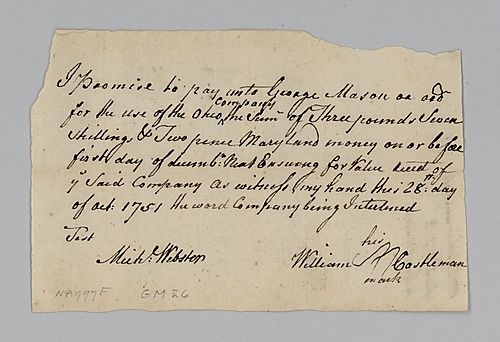 I Promise to pay unto George Mason or ordr
for the use of the Ohio Company the Sum of Three pounds Seven
Shillings & Two pence Maryland money on or before
first day of decembr Next Ensuing for Value Receed of
ye Said Company As witness my hand this 28th day
of Oct: 1751 the word Company being Interlined
Test
his
Michl Webster William H Castleman
mark
NA997F GM 26